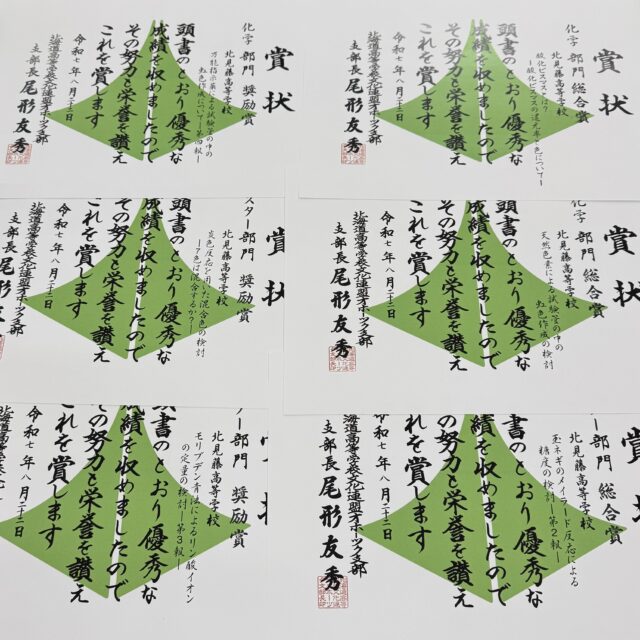 賞状
化学部門 総合賞
酸化ビスマスとは?
ー酸化ビスマスの還元率と色についてー
北見藤高等学校
頭書のとおり優秀な
成績を収めましたので
その努力と栄誉を讃え
これを賞します
令和七年八月二十二日
北海道高等学校文化連盟オホーツク支部
支部長 尾形友秀
賞状
化学部門 奨励賞
万能指示薬による試験管の中の
虹色作成についてー第四報ー
北見藤高等学校
頭書のとおり優秀な
成績を収めましたので
その努力と栄誉を讃え
これを賞します
令和七年八月二十二日
北海道高等学校文化連盟オホーツク支部
支部長 尾形友秀
賞状
化学部門 総合賞
天然色素による試験管の中の
虹色作成の検討
北見藤高等学校
頭書のとおり優秀な
成績を収めましたので
その努力と栄誉を讃え
これを賞します
令和七年八月二十二日
北海道高等学校文化連盟オホーツク支部
支部長 尾形友秀
賞状
スター部門 奨励賞
炎色反応を用いた混合色の検討
ー7色は混合するか?ー
北見藤高等学校
頭書のとおり優秀な
成績を収めましたので
その努力と栄誉を讃え
これを賞します
令和七年八月二十二日
北海道高等学校文化連盟オホーツク支部
支部長 尾形友
賞状
ー部門 総合賞
玉ネギのメイラード反応による
糖度の検討ー第2報ー
北見藤高等学校
頭書のとおり優秀な
成績を収めましたので
その努力と栄誉を讃え
これを賞します
令和七年八月二十二日
北海道高等学校文化連盟オホーツク支部
支部長 尾形友秀
賞状
ター部門 奨励賞
モリブデン青法によるリン酸イオン
の定量の検討ー第3報ー
北見藤高等学校
頭書のとおり優秀な
成績を収めましたので
その努力と栄誉を讃え
これを賞します
令和七年八月二十二日
北海道高等学校文化連盟オホーツク支部
支部長 尾形友秀